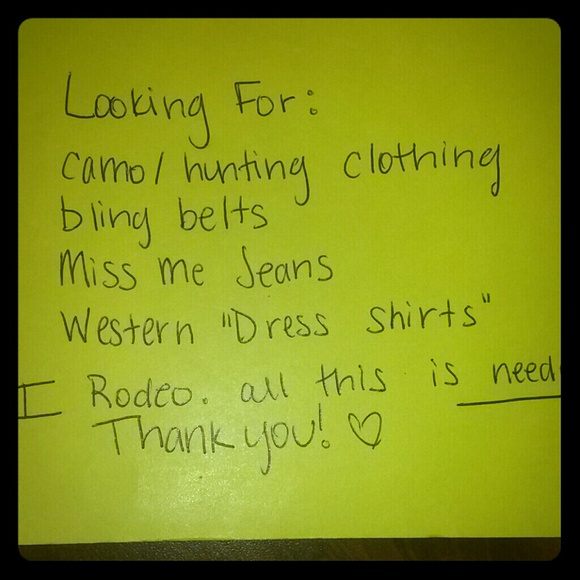 Looking For:
camo/ hunting clothing
bling belts
Miss me Jeans
Western "Dress shirts"
I Rodeo. all this is need
Thank you! ♡